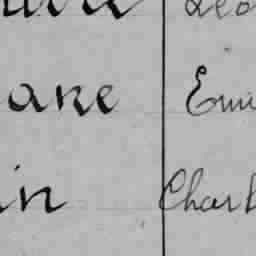 ane Emi
in Charl